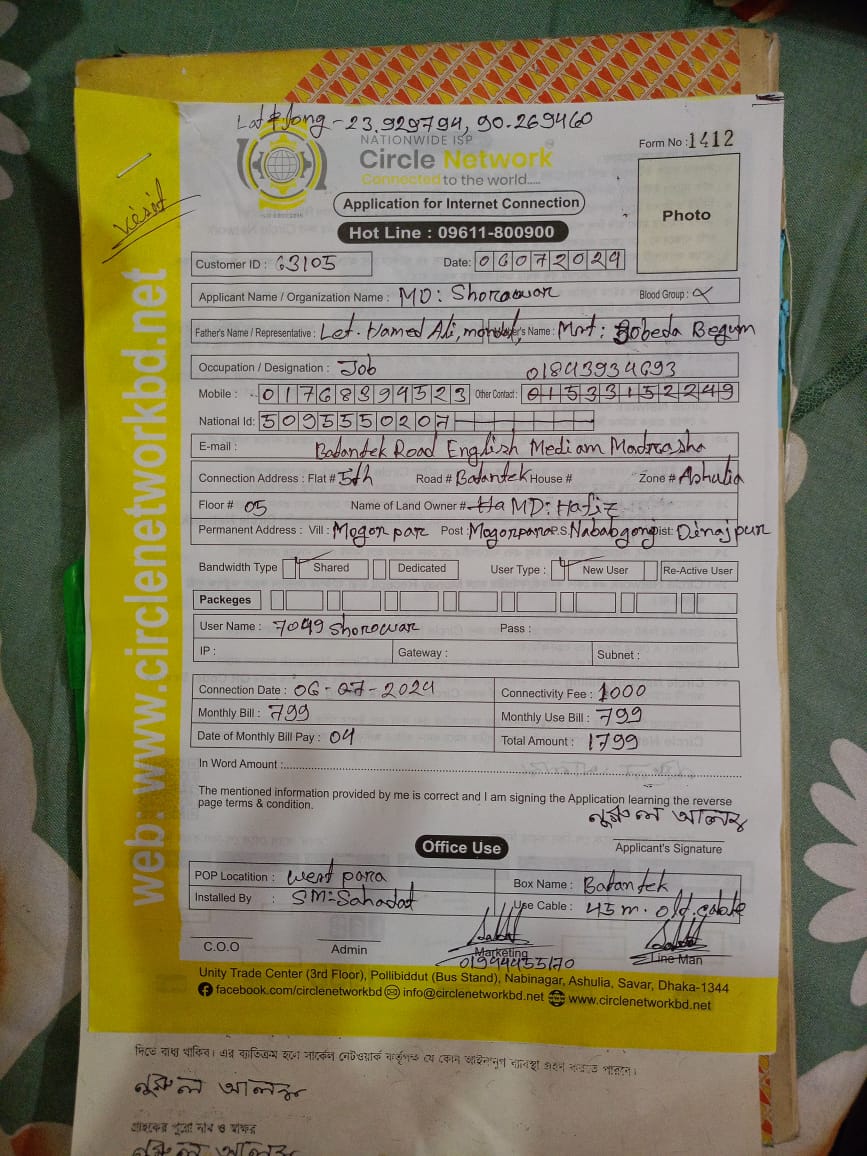 Lat & long - 23.929794, 90.269460
NATIONWIDE ISP
Form No : 1412
Circle Network
Connected to the world.....
Application for Internet Connection
Photo
Hot Line : 09611-800900
visit
web: www.circlenetworkbd.net
Customer ID : 63105 Date: 06072024
Applicant Name / Organization Name : MD: Shoraowar Blood Group :
Father's Name / Representative : Let. Hamed Ali, Name : Mrt: Jobeda Begum
Occupation / Designation : Job 01843934693
Mobile : 01768394523 Other Contact : 01533152249
National Id: 5095550207
E-mail : Batantek Road English Mediam Madrasha
Connection Address : Flat # 5th Road # Batantek House # Zone # Ashulia
Floor # 05 Name of Land Owner # Ha MD: Hafiz
Permanent Address : Vill : Mogorpar Post : Mogorpara P.S. Nababgonj Dist: Dinajpur
Bandwidth Type Shared Dedicated User Type : New User Re-Active User
Packeges
User Name : 7049 Shorowar Pass :
IP : Gateway : Subnet :
Connection Date : 06-07-2024 Connectivity Fee : 1000
Monthly Bill : 799 Monthly Use Bill : 799
Date of Monthly Bill Pay : 04 Total Amount : 1799
In Word Amount :
The mentioned information provided by me is correct and I am signing the Application learning the reverse
page terms & condition.
নুরুল আলম
Applicant's Signature
Office Use
POP Locatition : West para Box Name : Batantek
Installed By : SM: Sahadat Use Cable : 45 m. old cable
C.O.O Admin Marketing Line Man
01944455170
Unity Trade Center (3rd Floor), Pollibiddut (Bus Stand), Nabinagar, Ashulia, Savar, Dhaka-1344
facebook.com/circlenetworkbd info@circlenetworkbd.net www.circlenetworkbd.net
দিতে বাধ্য থাকিব। এর ব্যতিক্রম হলে সার্কেল নেটওয়ার্ক কর্তৃপক্ষ যে কোন আইনানুগ ব্যবস্থা গ্রহণ করতে পারবেন।
নুরুল আলম
গ্রাহকের পুরো নাম ও স্বাক্ষর
নুরুল আলম